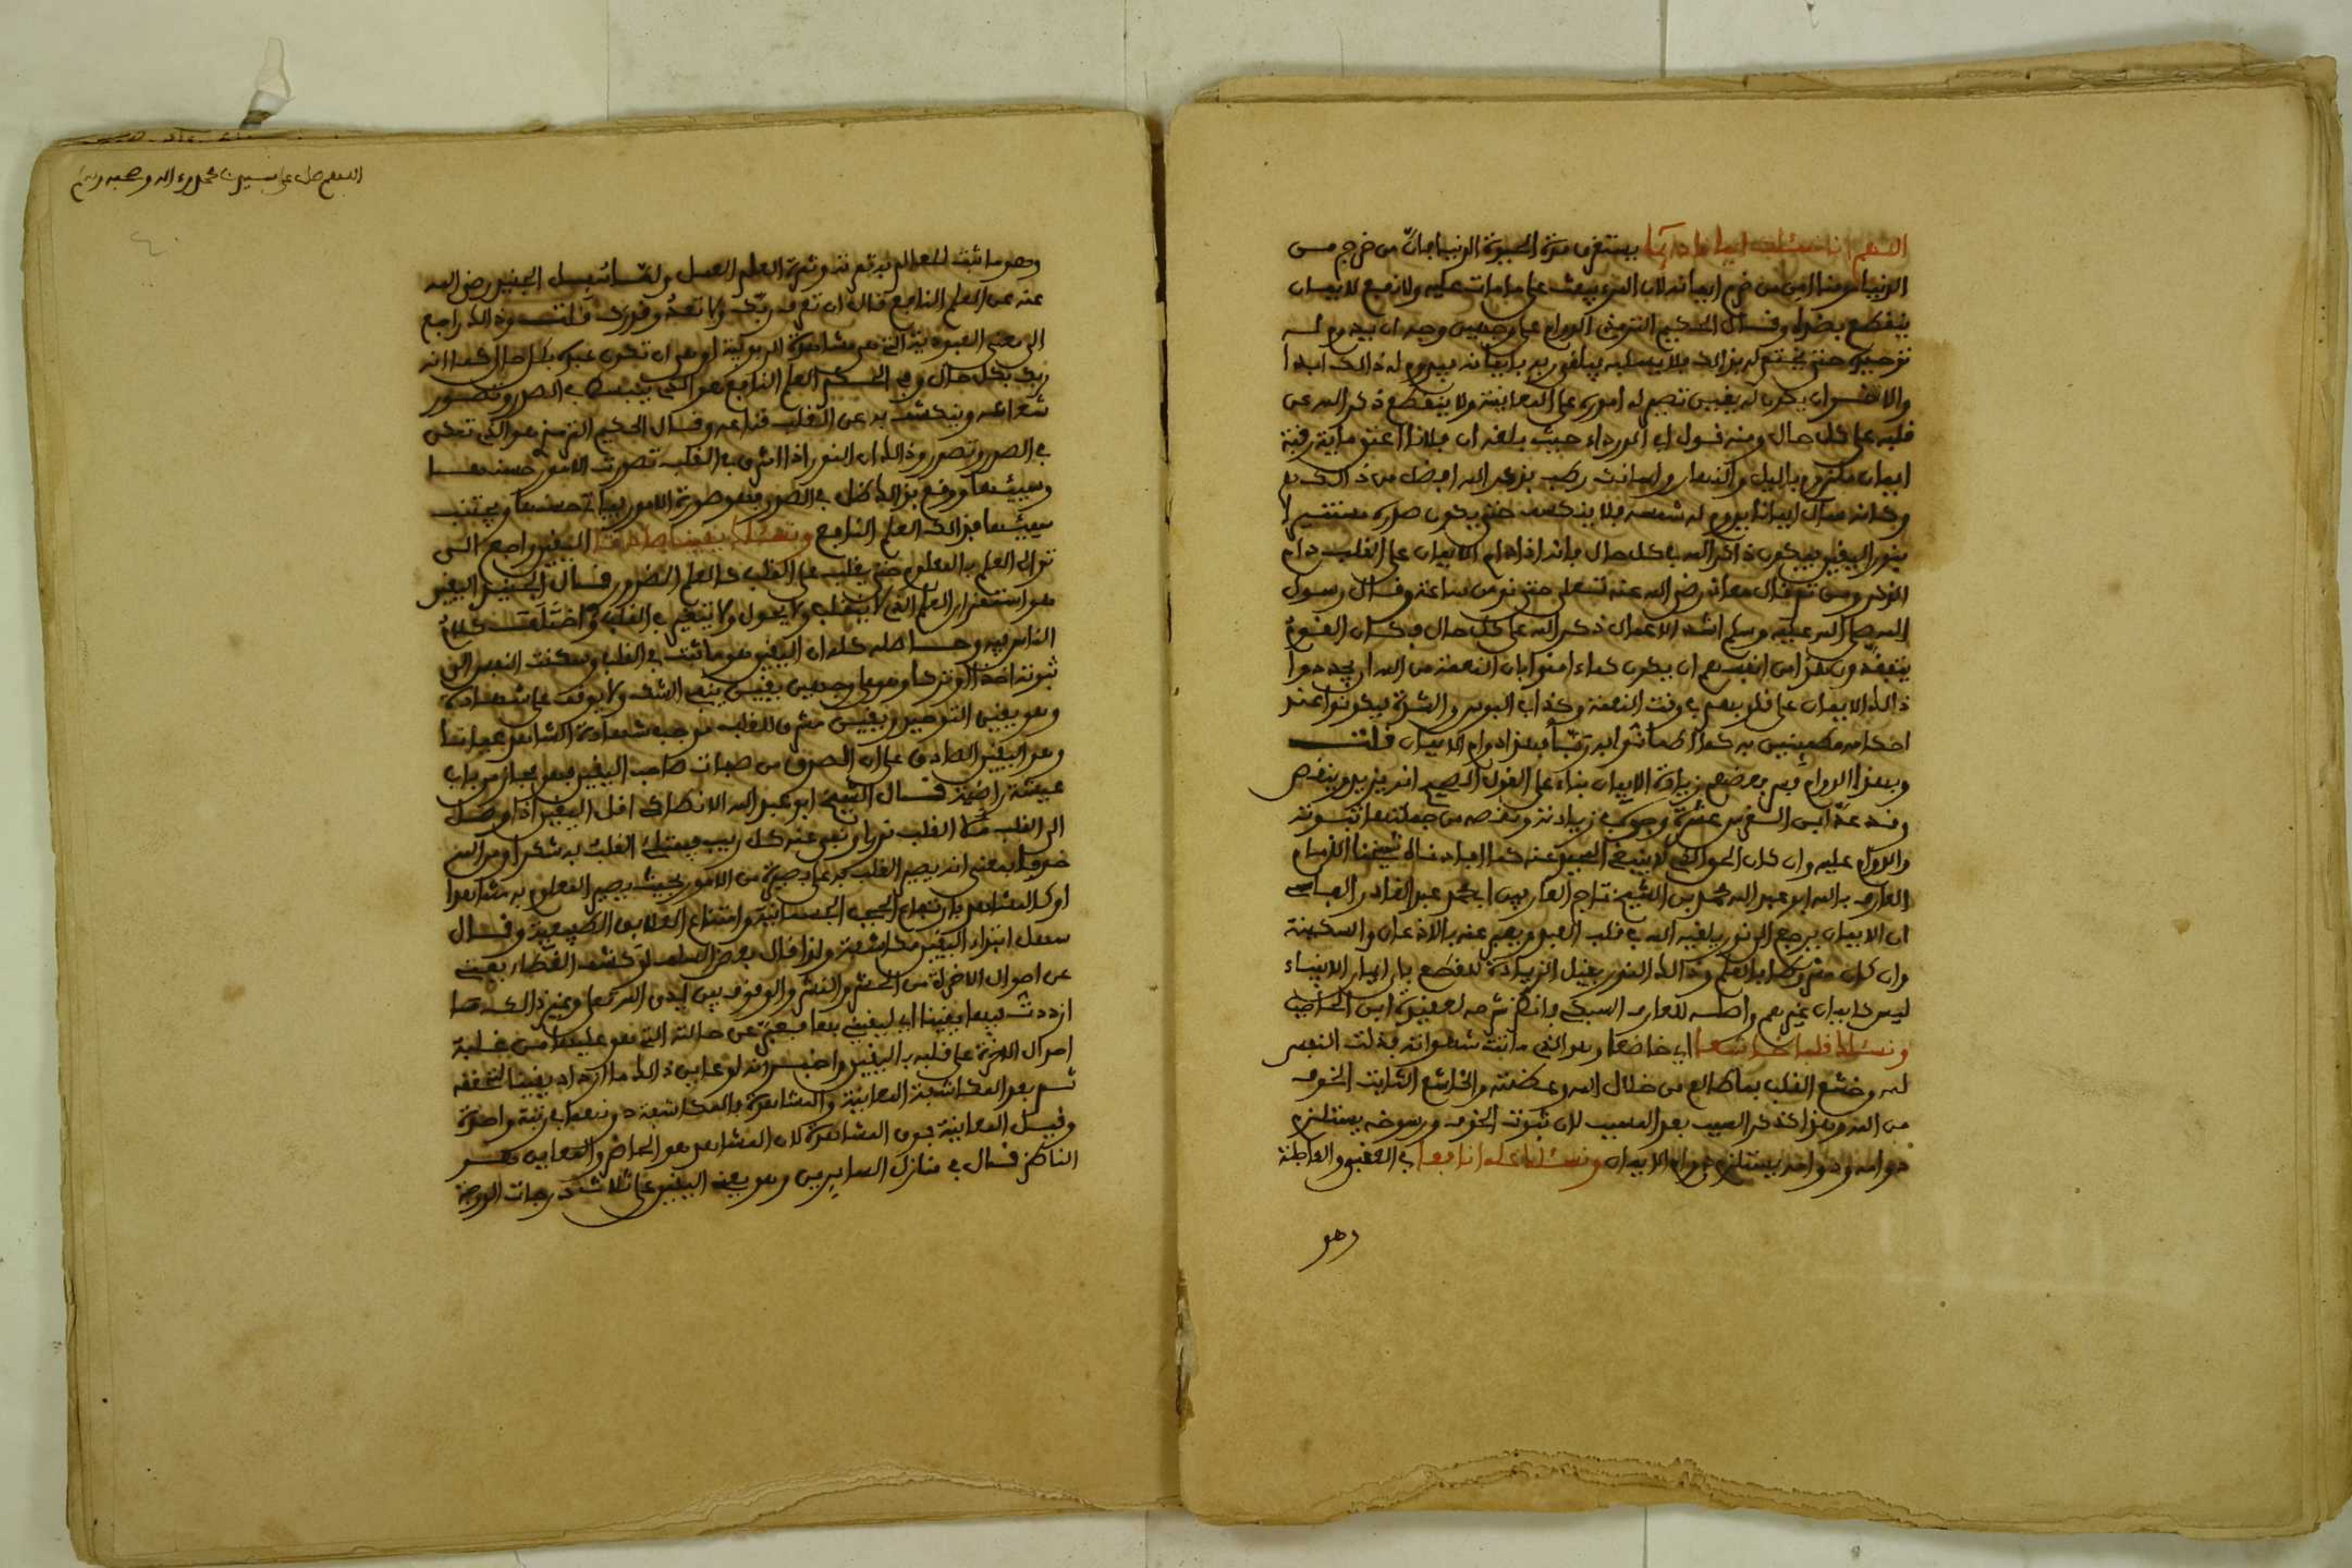 اللهم انا نسئلك ايمانا دائما يستغرق مدة الحيوة الدنيا فان من خرج من
الدنيا مومنا امن من خرم ايمانه لان المرء يبعث على ما مات عليه ولا نفع لايمان
ينقطع بضده وقال الحكيم الترمذي الدوام على وجهين وجه ان يدوم له
توحيده حتى يختم له بذالك فلا يسلبه فيلقى ربه بايمانه فيدوم له ذالك ابدا
والاخر ان يكون له يقين تصير له اموره على المعاينة ولا ينقطع ذكر الله عن
قلبه على كل حال ومنه قول ابي الدرداء حيث بلغه ان فلانا اعتق مائة رقبة
ايمان ملزوم باليل والنهار ولسانك رطب بذكر الله افضل من ذالك
وكانه سال ايمانا يدوم له شمسه فلا ينكسف حتى يكون صدره مستنيرا
بنور اليقين فيكون ذاكرا لله على كل حال فانه اذا دام الايمان على القلب دام
الذكر ومن ثم قال معاذ رضي الله عنه تعلى حتى نومن ساعة وقال رسول
الله صلى الله عليه وسلم اشد الاعمال ذكر الله على كل حال فكان القوم
يتفقدون هذا من انفسهم ان يكون كلماء امنوا بان النعمة من الله ان يجددوا
ذالك الايمان على قلوبهم في وقت النعمة وكذا في البوس والشدة فيكونوا عند
احكامه مطمئنين به كما اطمانوا به ربا فهذا دوام الايمان قلت
وبهذا الدوام فسر بعضهم زيادة الايمان بناء على القول الصحيح انه يزيد وينقص
وقد عد ابن السفر عشرة وجوه في زيادته ونقصه من جملتها ثبوته
والدوام عليه وان كان الحق الذي لا ينبغي المحيد عنه كما افادناه شيخنا الامام
العارف بالله ابو عبد الله محمد بن الشيخ تاج العارفين ابي محمد عبد القادر الفاسي
ان الايمان يرجع الى نور يلقيه الله في قلب العبد ويعبر عنه بالاذعان والسكينة
وان كان مشروطا بالعلم وذالك النور يقبل الزيادة للقطع بان ايمان الانبياء
ليس كايمان غيرهم واصله للعارف السبكي فانظر شرحه لعقيدة ابن الحاجب
ونسئلك قلبا خاشعا اي خاضعا وهو الذي ماتت شهواته فذلت النفس
له وخشع القلب بما طالع من جلال الله وعظمته والخاشع الثابت الخوف
من الله وهذا كذكر السبب بعد المسبب لان ثبوت الخوف ورسوخه يستلزم
دوامه ودوامه يستلزم دوام الايمان ونسئلك علما نافعا في العقبى والعاجلة
وهو
اللهم صل على سيدنا محمد وءاله وصحبه وسلم
وهو ما ثبت للعالم به ثمرته وثمرة العلم العمل ولما سئل الجنيد رضي الله
عنه عن العلم النافع قال ان تعرف ربك ولا تعدو قدرك قلت وذالك راجع
الى معنى العبودية التي هي مشاهدة الربوبية او هي ان تكون عبده بكل حال كما انه
ربك بكل حال وفي الحكم العلم النافع هو الذي ينبسط في الصدر
شعاعه وينكشف به عن القلب قناعه وقال الحكيم الترمذي هو الذي تمكن
في الصدر وتصور وذالك ان النور اذا اشرق في القلب تصورت الامور حسنها
وسيئها ووقع بذالك ظل في الصدر فهو صورة الامور فياتي حسنها ويجتنب
سيئها فذالك العلم النافع ونسئلك يقينا صادقا اليقين راجع الى
توالي العلم بالمعلوم حتى يغلب على القلب كالعلم الضروري قال الجنيد اليقين
هو استقرار العلم الذي لا ينقلب ولا يحول ولا يتغير في القلب واختلفت كلام
الناس فيه وحاصله كله ان اليقين هو ما ثبت في القلب وسكنت النفس الى
ثبوته اخذا او تركا وهو على وجهين يقين ينفي الشك ولا يوقف على شهادة
وهو يقين التوحيد ويقين مشرق للقلب موجب شهادة الشاهد عيانا
وهو اليقين الصادق على ان الصدق من صفات صاحب اليقين فهو مجاز من باب
عيشة راضية قال الشيخ ابو عبد الله الانطاكي اقل اليقين اذا وصل
الى القلب ملا القلب نورا ونفى عنه كل ريب فيمتلئ القلب به شكرا ومن الله
خوفا بمعنى انه يصير القلب على بصيرة من الامور بحيث يصير المعلوم به مشاهدا
او كالمشاهد بارتفاع الحجب الجسمانية وانقطاع العلايق الطبيعية وقال
سهل ابتداء اليقين مكاشفة ولذا قال بعض السلف لو كشف الغطاء يعني
عن احوال الاخرة من الحشر والنشر والوقوف بين ايدي الله تعلى وغير ذالك ما
ازددت فيها يقينا اي ليقيني بها فعبر عن حالته التي هو عليها من غلبة
احوال الاخرة على قلبه باليقين واخبر انه لو عاين ذالك ما ازداد يقينا لتحققه
ثم بعد المكاشفة المعاينة والمشاهدة فالمكاشفة دونهما في رتبة واحدة
وقيل المعاينة فوق المشاهدة لان المشاهد هو الحاضر والمعاين هو
الناظر قال في منازل السايرين وهو يعني اليقين على ثلاث درجات الدرجة